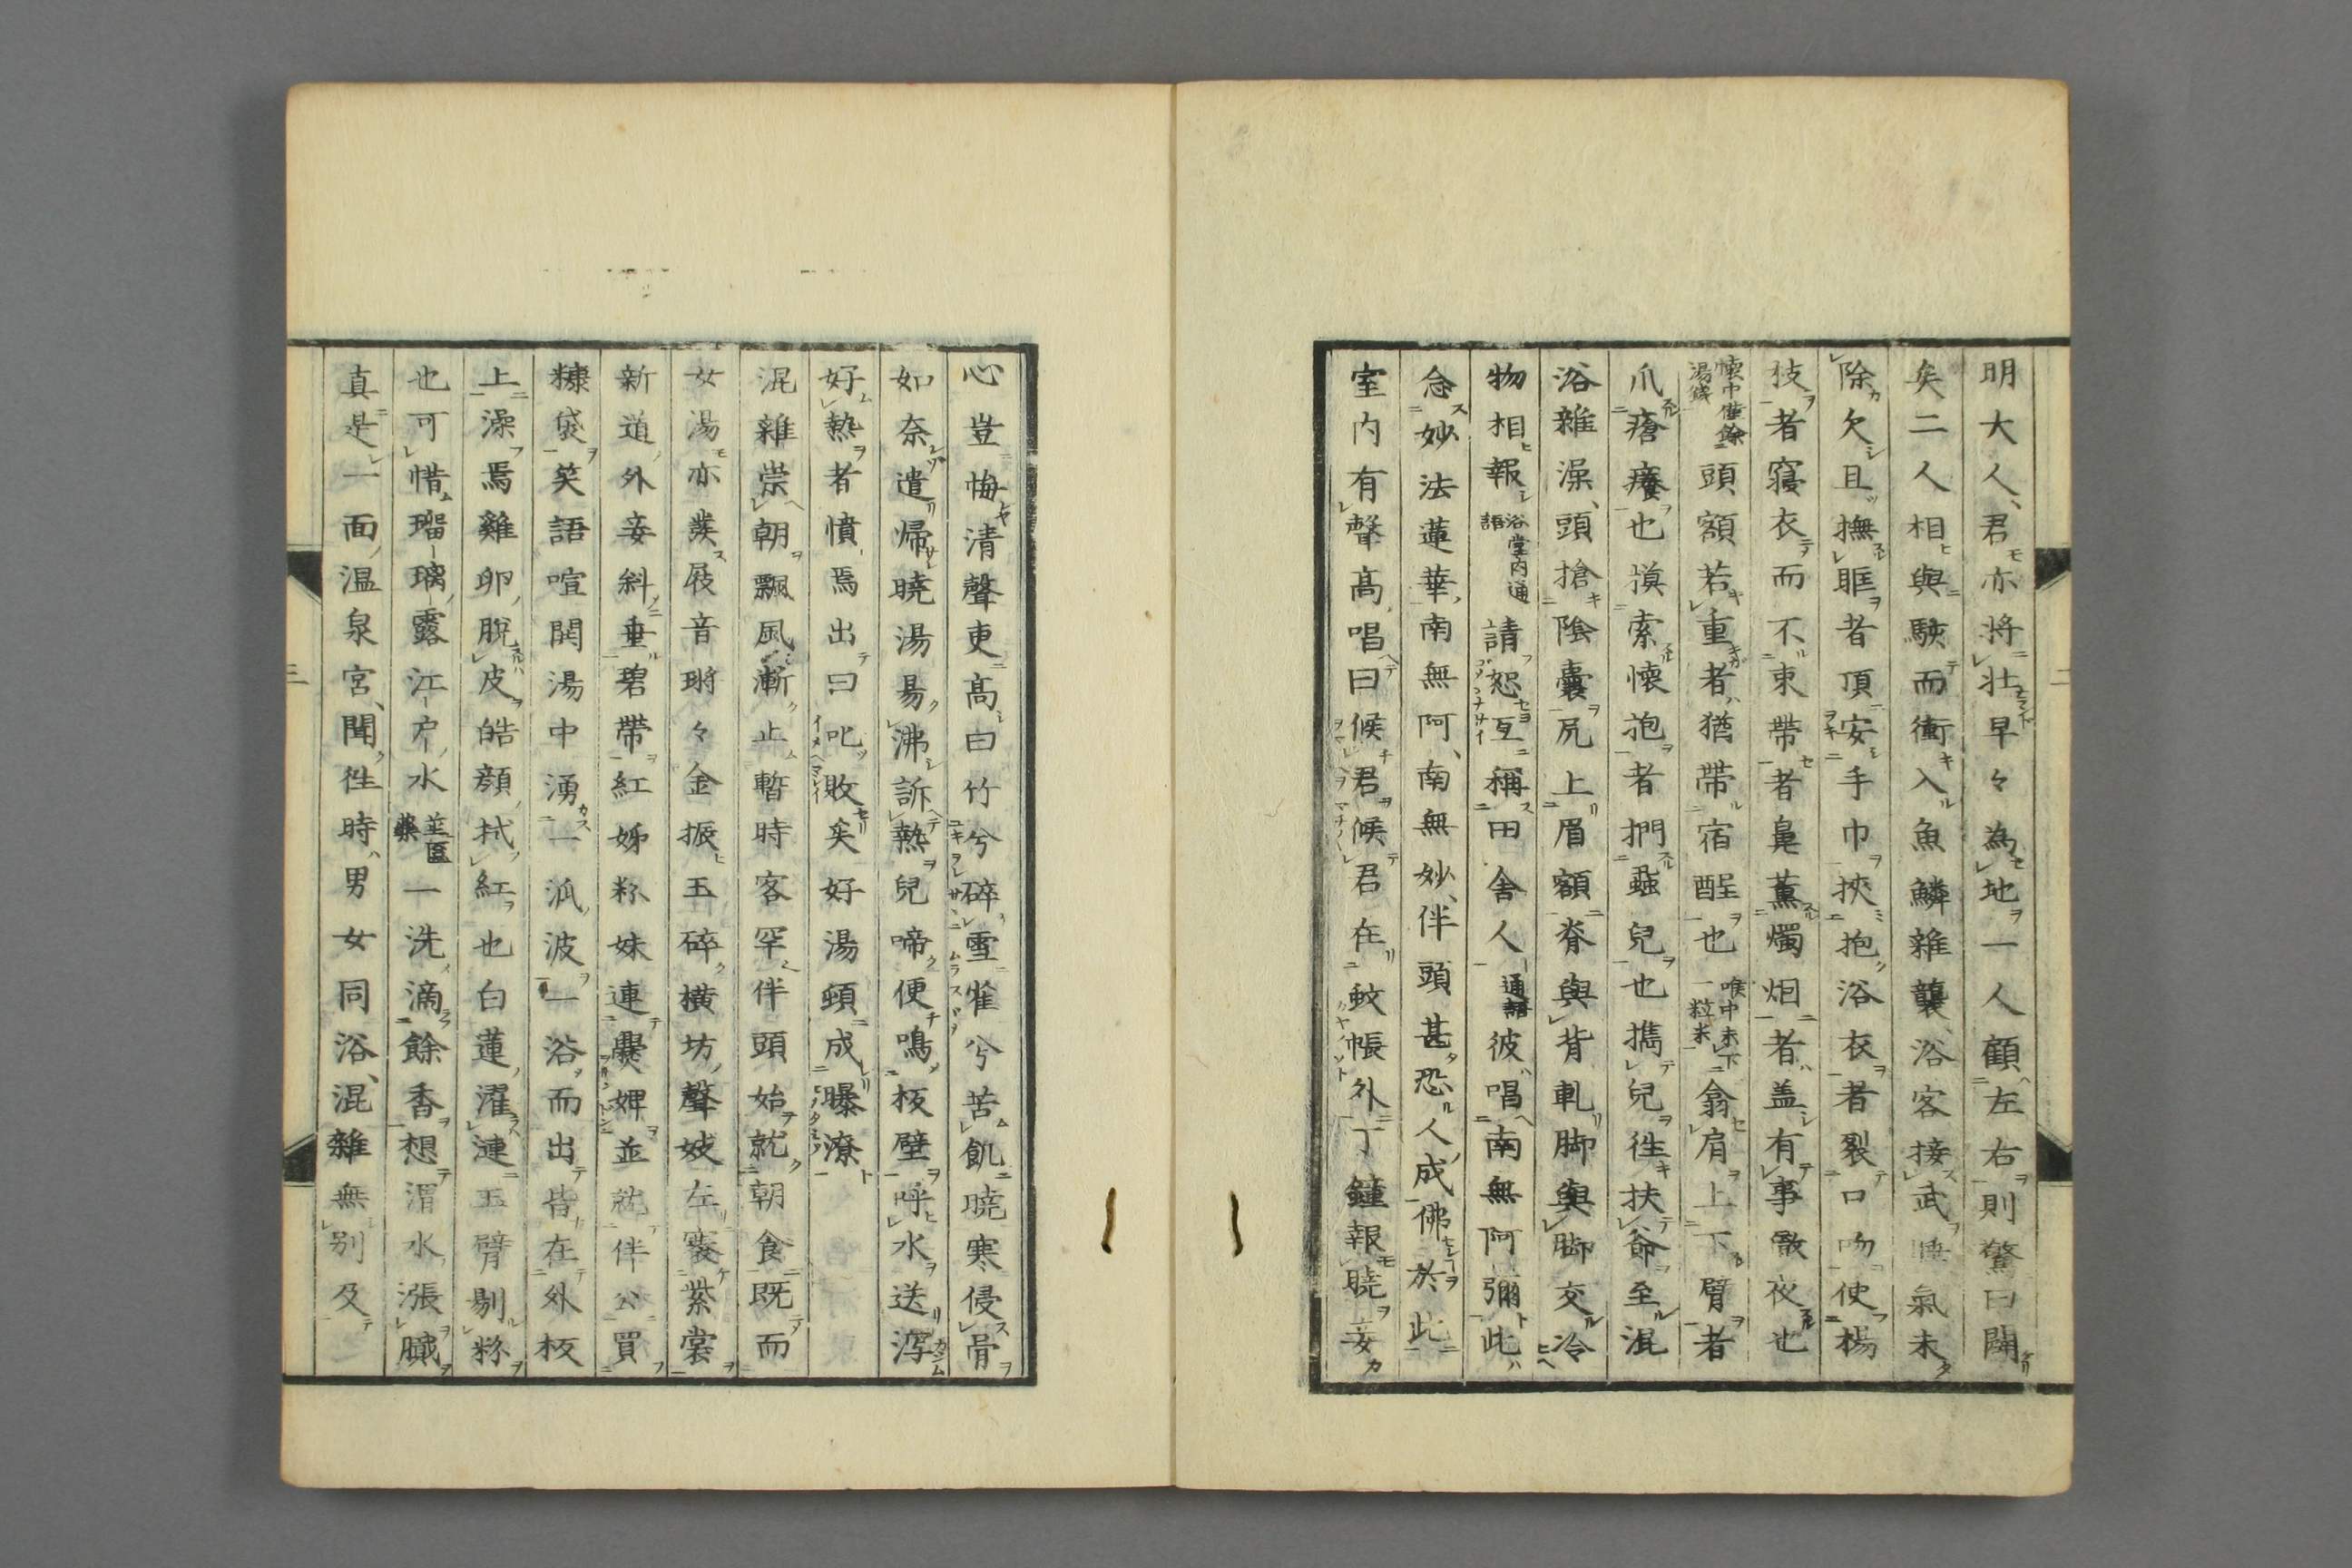 明大人君亦将壮早々為地一人顧左右則驚曰闢
矣二人相與駭而衝入魚鱗雜襲浴客接武睡氣未
除欠且撫眶者頂安手巾挾抱浴衣者裂口吻使楊
枝者寝衣而不束帶者鼻薫燭烟者盖有事敬夜也
懐中僅餘湯錢頭額若重者猶帶宿酲也喉中未下一粒米翕肩上下臂者
爪瘡癢也慎索懐抱者捫蝨兒也攜兒徃扶爺至混
浴雜澡頭搶陰嚢尻上眉額脊與背軋脚與脚交冷
物相報浴堂内通語請恕互稱田舎人通語彼唱南無阿彌此
念妙法蓮華南無阿南無妙伴頭甚恐人成佛於此
室内有聲高唱曰候君候君在蚊帳外丁鐘報曉妾
心豈悔清聲吏高曰竹兮碎雪雀兮苦飢曉寒侵骨
如奈遣歸曉湯易沸訴熱兒啼便鳴板壁呼水送瀉
好熱者憤焉出曰叱敗矣好湯頓成曝潦
混雜崇朝飄風漸止暫時客罕伴頭始就朝食既而
女湯亦发屐音琳々金振玉碎横坊聲妓左褰紫裳
新道外妾斜垂碧帶紅姊粉妹連爨婢並就伴公買
糠袋笑語喧閧湯中湧一派波一浴而出皆在外板
上澡焉雞卵脱皮皓顔拭紅也白蓮濯漣玉臂剔粉
也可惜瑠璃露江戸水並區藥一洗滴餘香想渭水漲膩
真是一面温泉宮聞徃時男女同浴混雜無別及
二
三